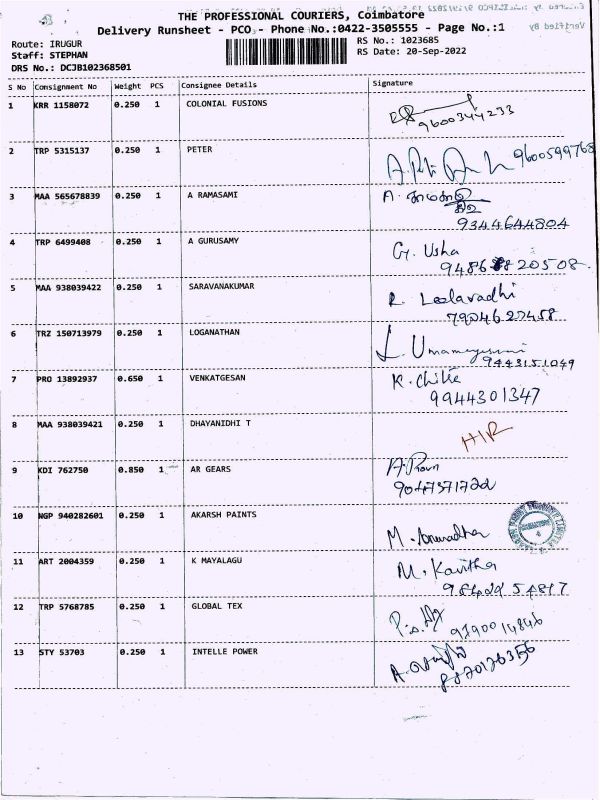 THE PROFESSIONAL COURIERS, Coimbatore
Delivery Runsheet - PCO - Phone No.:0422-3505555 - Page No.:1
Route: IRUGUR
RS No.: 1023685
Staff: STEPHAN
RS Date: 20-Sep-2022
DRS No.: DCJB102368501
S No Consignment No Weight PCS Consignee Details Signature
1 KRR 1158072 0.250 1 COLONIAL FUSIONS
9600344233
2 TRP 5315137 0.250 1 PETER 9600599768
3 MAA 565678839 0.250 1 A RAMASAMI A.
9344644804
4 TRP 6499408 0.250 1 A GURUSAMY G. Usha
9486 20508
5 MAA 938039422 0.250 1 SARAVANAKUMAR R. Leelavadhi
7904627458
6 TRZ 150713979 0.250 1 LOGANATHAN L. Umamageswari
9443151049
7 PRO 13892937 0.650 1 VENKATGESAN K. Chitra
9944301347
8 MAA 938039421 0.250 1 DHAYANIDHI T
9 KDI 762750 0.850 1 AR GEARS
10 NGP 940282601 0.250 1 AKARSH PAINTS M. Anuradha
11 ART 2004359 0.250 1 K MAYALAGU M. Kavitha
12 TRP 5768785 0.250 1 GLOBAL TEX
13 STY 53703 0.250 1 INTELLE POWER
8870176356